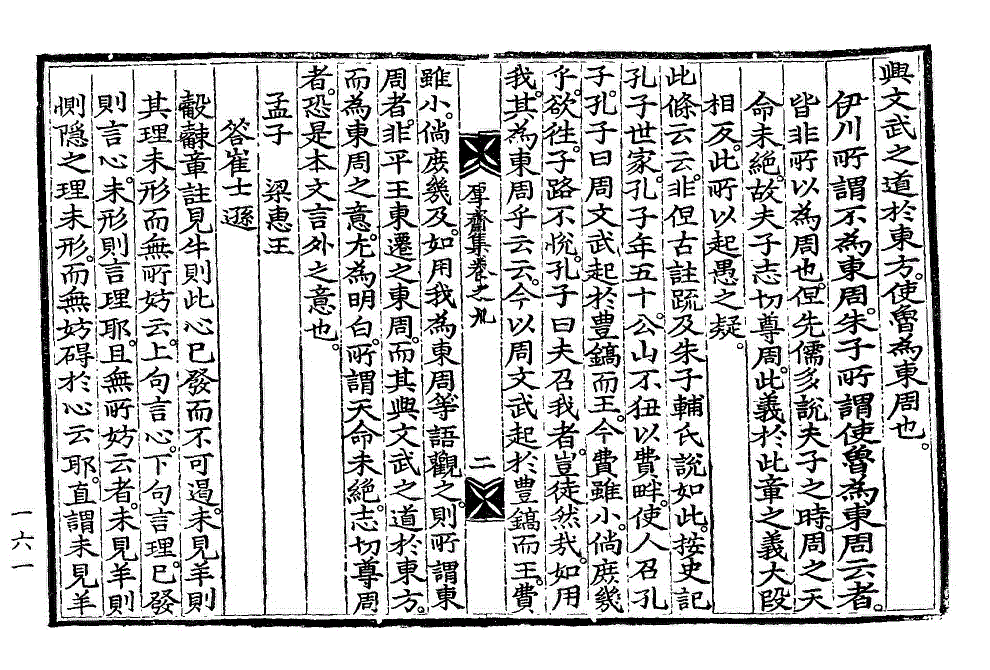 興文武之道於東方。使魯為東周也。
伊川所謂不為東周。朱子所謂使魯為東周云者。
皆非所以為周也。但先儒多說夫子之時。周之天
命未絕。故夫子志切尊周。此義於此章之義大段
相反。此所以起愚之疑。
此條云云。非但古註疏及朱子輔氏說如此。按史記
孔子世家。孔子年五十。公山不狃以費畔。使人召孔
子。孔子曰周文武起於豊鎬而王。今費雖小。倘庶幾
乎。欲往。子路不悅。孔子曰夫召我者。豈徒。然哉。如用
我。其為東周乎云云。今以周文武起於豊鎬而王。費
厚齋集卷之九
二
雖小。倘庶幾及。如用我為東周等語觀之。則所謂東
周者。非平王東遷之東周。而其興文武之道於東方。
而為東周之意。尤為明白。所謂天命未絕。志切尊周
者。恐是本文言外之意也。
孟子 梁惠王
答崔士遜
觳觫章註見牛則此心已發而不可遏。未見羊則
其理未形而無所妨云。上句言心。下句言理。已發
則言心。未形則言理耶。且無所妨云者。未見羊則
惻隱之理未形。而無妨碍於心云耶。直謂未見羊
一六一